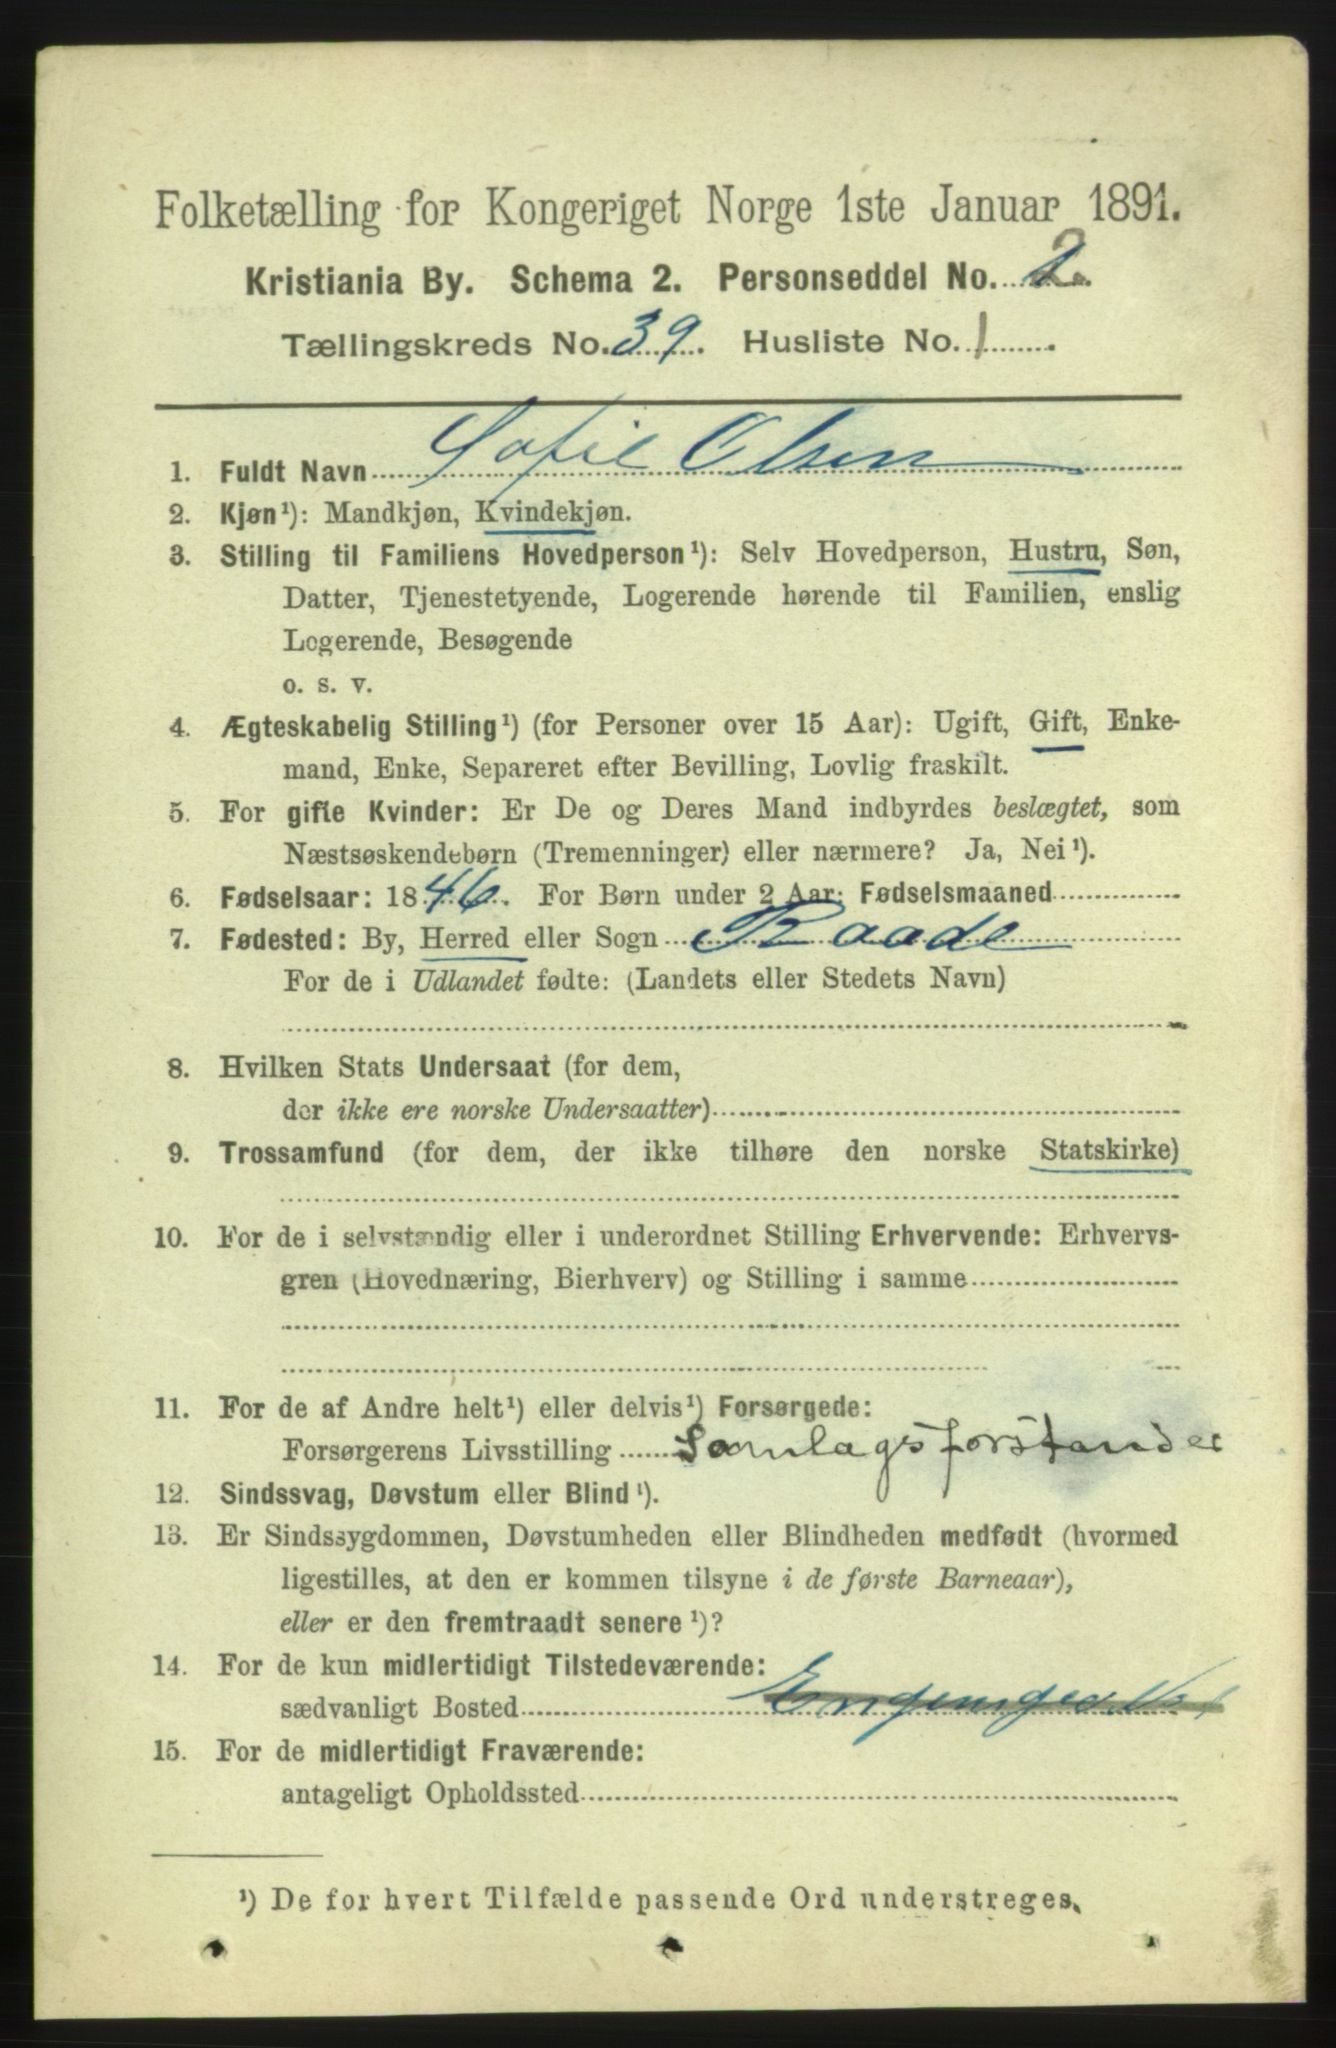 Folketælling for Kongeriget Norge 1ste Januar 1891.
Kristiania By. Schema 2. Personseddel No. 2.
Tællingskreds No. 39. Husliste No. 1.
1. Fuldt Navn Sofie Olsen
2. Kjøn¹): Mandkjøn, Kvindekjøn.
3. Stilling til Familiens Hovedperson¹): Selv Hovedperson, Hustru, Søn,
Datter, Tjenestetyende, Logerende hørende til Familien, enslig
Logerende, Besøgende
o. s. v.
4. Ægteskabelig Stilling¹) (for Personer over 15 Aar): Ugift, Gift, Enke-
mand, Enke, Separeret efter Bevilling, Lovlig fraskilt.
5. For gifte Kvinder: Er De og Deres Mand indbyrdes beslægtet, som
Næstsøskendebørn (Tremenninger) eller nærmere? Ja, Nei¹).
6. Fødselsaar: 1846. For Børn under 2 Aar: Fødselsmaaned
7. Fødested: By, Herred eller Sogn Raade
For de i Udlandet fødte: (Landets eller Stedets Navn)
8. Hvilken Stats Undersaat (for dem,
der ikke ere norske Undersaatter)
9. Trossamfund (for dem, der ikke tilhøre den norske Statskirke)
10. For de i selvstændig eller i underordnet Stilling Erhvervende: Erhvervs-
gren (Hovednæring, Bierhverv) og Stilling i samme
11. For de af Andre helt¹) eller delvis¹) Forsørgede:
Forsørgerens Livsstilling Samlagsforstander
12. Sindssvag, Døvstum eller Blind¹).
13. Er Sindssygdommen, Døvstumheden eller Blindheden medfødt (hvormed
ligestilles, at den er kommen tilsyne i de første Barneaar),
eller er den fremtraadt senere¹)?
14. For de kun midlertidigt Tilstedeværende:
sædvanligt Bosted
15. For de midlertidigt Fraværende:
antageligt Opholdssted
¹) De for hvert Tilfælde passende Ord understreges.